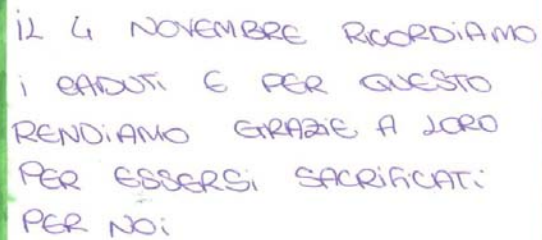 IL 4 NOVEMBRE RICORDIAMO
I CADUTI E PER QUESTO
RENDIAMO GRAZIE A LORO
PER ESSERSI SACRIFICATI
PER NOI